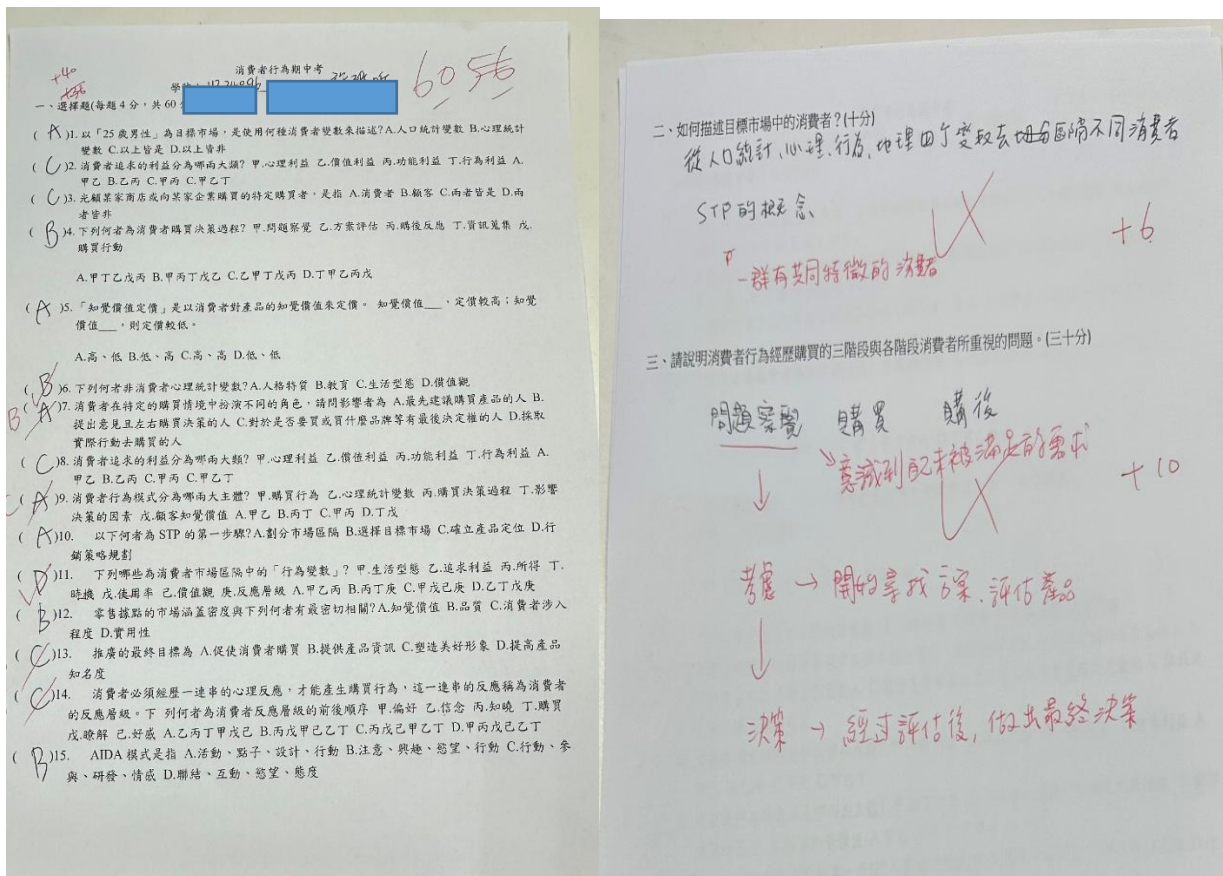 消費者行為期中考
+40
60 56
一、選擇題(每題4分，共60
( A )1. 以「25歲男性」為目標市場，是使用何種消費者變數來描述? A.人口統計變數 B.心理統計
變數 C.以上皆是 D.以上皆非
( C )2. 消費者追求的利益分為哪兩大類? 甲.心理利益 乙.價值利益 丙.功能利益 丁.行為利益 A.
甲乙 B.乙丙 C.甲丙 C.甲乙丁
( C )3. 光顧某家商店或向某家企業購買的特定購買者，是指 A.消費者 B.顧客 C.兩者皆是 D.兩
者皆非
( B )4. 下列何者為消費者購買決策過程? 甲.問題察覺 乙.方案評估 丙.購後反應 丁.資訊蒐集 戊.
購買行動
A.甲丁乙戊丙 B.甲丙丁戊乙 C.乙甲丁戊丙 D.丁甲乙丙戊
( A )5. 「知覺價值定價」是以消費者對產品的知覺價值來定價。 知覺價值___，定價較高；知覺
價值___，則定價較低。
A.高、低 B.低、高 C.高、高 D.低、低
( B )6. 下列何者非消費者心理統計變數? A.人格特質 B.教育 C.生活型態 D.價值觀
B ( A )7. 消費者在特定的購買情境中扮演不同的角色，請問影響者為 A.最先建議購買產品的人 B.
提出意見且左右購買決策的人 C.對於是否要買或買什麼品牌等有最後決定權的人 D.採取
實際行動去購買的人
( C )8. 消費者追求的利益分為哪兩大類? 甲.心理利益 乙.價值利益 丙.功能利益 丁.行為利益 A.
甲乙 B.乙丙 C.甲丙 C.甲乙丁
( A )9. 消費者行為模式分為哪兩大主體? 甲.購買行為 乙.心理統計變數 丙.購買決策過程 丁.影響
決策的因素 戊.顧客知覺價值 A.甲乙 B.丙丁 C.甲丙 D.丁戊
( A )10. 以下何者為STP的第一步驟? A.劃分市場區隔 B.選擇目標市場 C.確立產品定位 D.行
銷策略規劃
( D )11. 下列哪些為消費者市場區隔中的「行為變數」? 甲.生活型態 乙.追求利益 丙.所得 丁.
時機 戊.使用率 己.價值觀 庚.反應層級 A.甲乙丙 B.丙丁庚 C.甲戊己庚 D.乙丁戊庚
( B )12. 零售據點的市場涵蓋密度與下列何者有最密切相關? A.知覺價值 B.品質 C.消費者涉入
程度 D.實用性
( C )13. 推廣的最終目標為 A.促使消費者購買 B.提供產品資訊 C.塑造美好形象 D.提高產品
知名度
( C )14. 消費者必須經歷一連串的心理反應，才能產生購買行為，這一連串的反應稱為消費者
的反應層級。下 列何者為消費者反應層級的前後順序 甲.偏好 乙.信念 丙.知曉 丁.購買
戊.瞭解 己.好感 A.乙丙丁甲戊己 B.丙戊甲己乙丁 C.丙戊己甲乙丁 D.甲丙戊己乙丁
( B )15. AIDA模式是指 A.活動、點子、設計、行動 B.注意、興趣、慾望、行動 C.行動、參
與、研發、情感 D.聯結、互動、慾望、態度
二、如何描述目標市場中的消費者?(十分)
從人口統計、心理、行為、地理四个變數去區隔不同消費者
STP的概念
+6
一群有共同特徵的消費者
三、請說明消費者行為經歷購買的三階段與各階段消費者所重視的問題。(三十分)
問題察覺 購買 購後
意識到未被滿足的需求
+10
考慮 → 開始尋找方案、評估產品
決策 → 經过評估後，做出最終決策